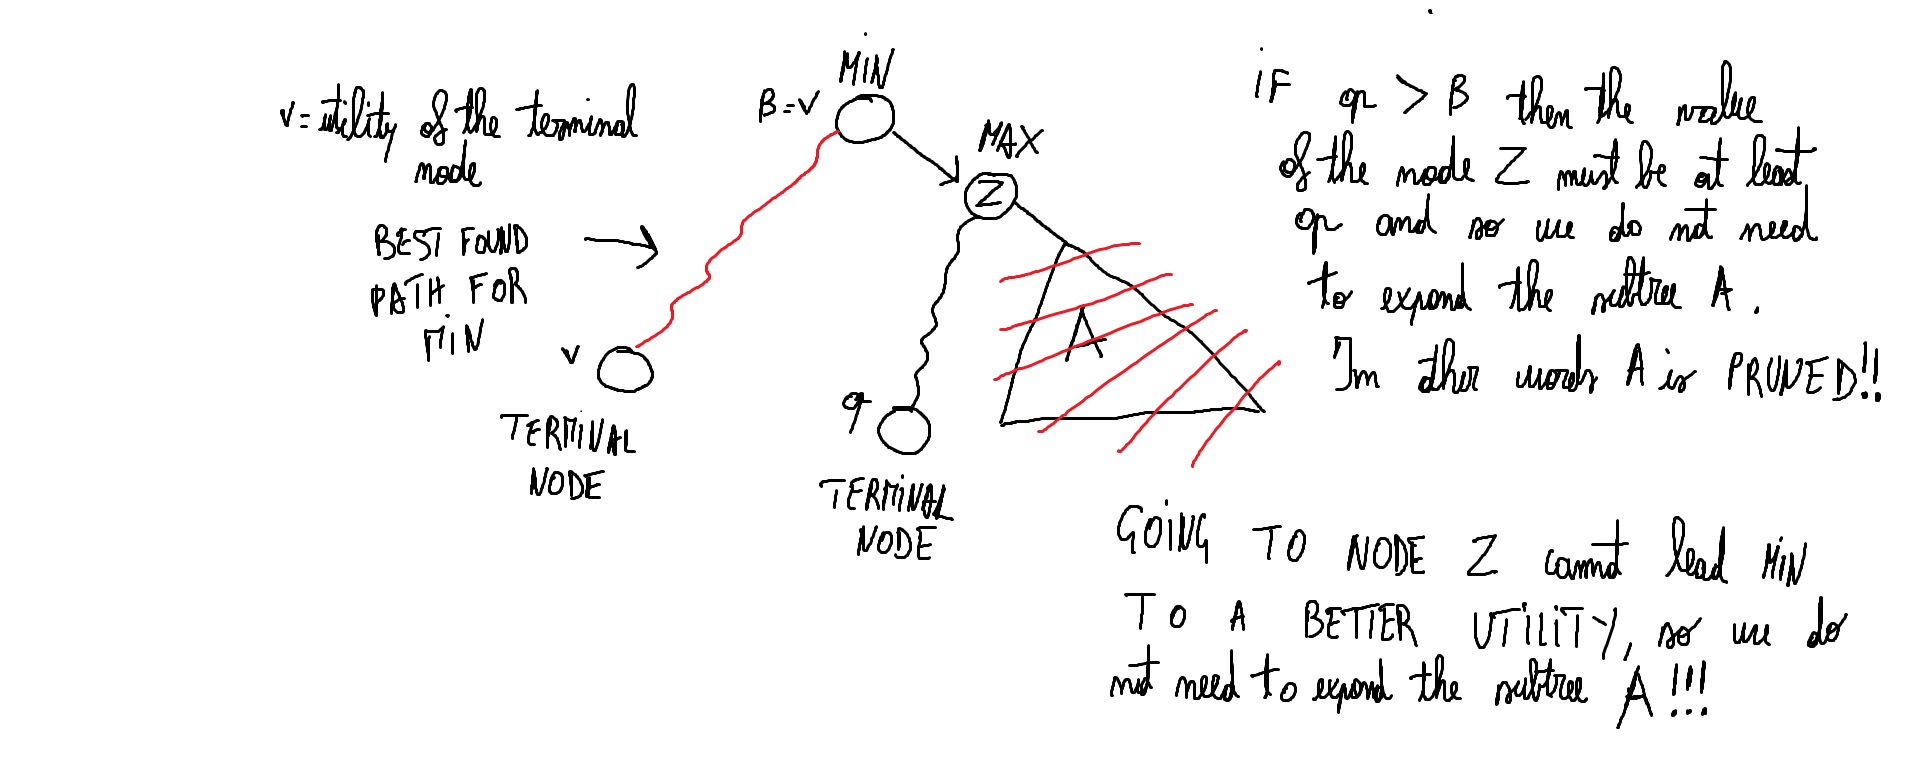 v = utility of the terminal
node
BEST FOUND
PATH FOR
MIN
MIN
B = v
MAX
Z
A
v
TERMINAL
NODE
q
TERMINAL
NODE
IF q > B then the value
of the node Z must be at least
q and so we do not need
to expand the subtree A.
In other words A is PRUNED!!
GOING TO NODE Z cannot lead MIN
TO A BETTER UTILITY, so we do
not need to expand the subtree A!!!